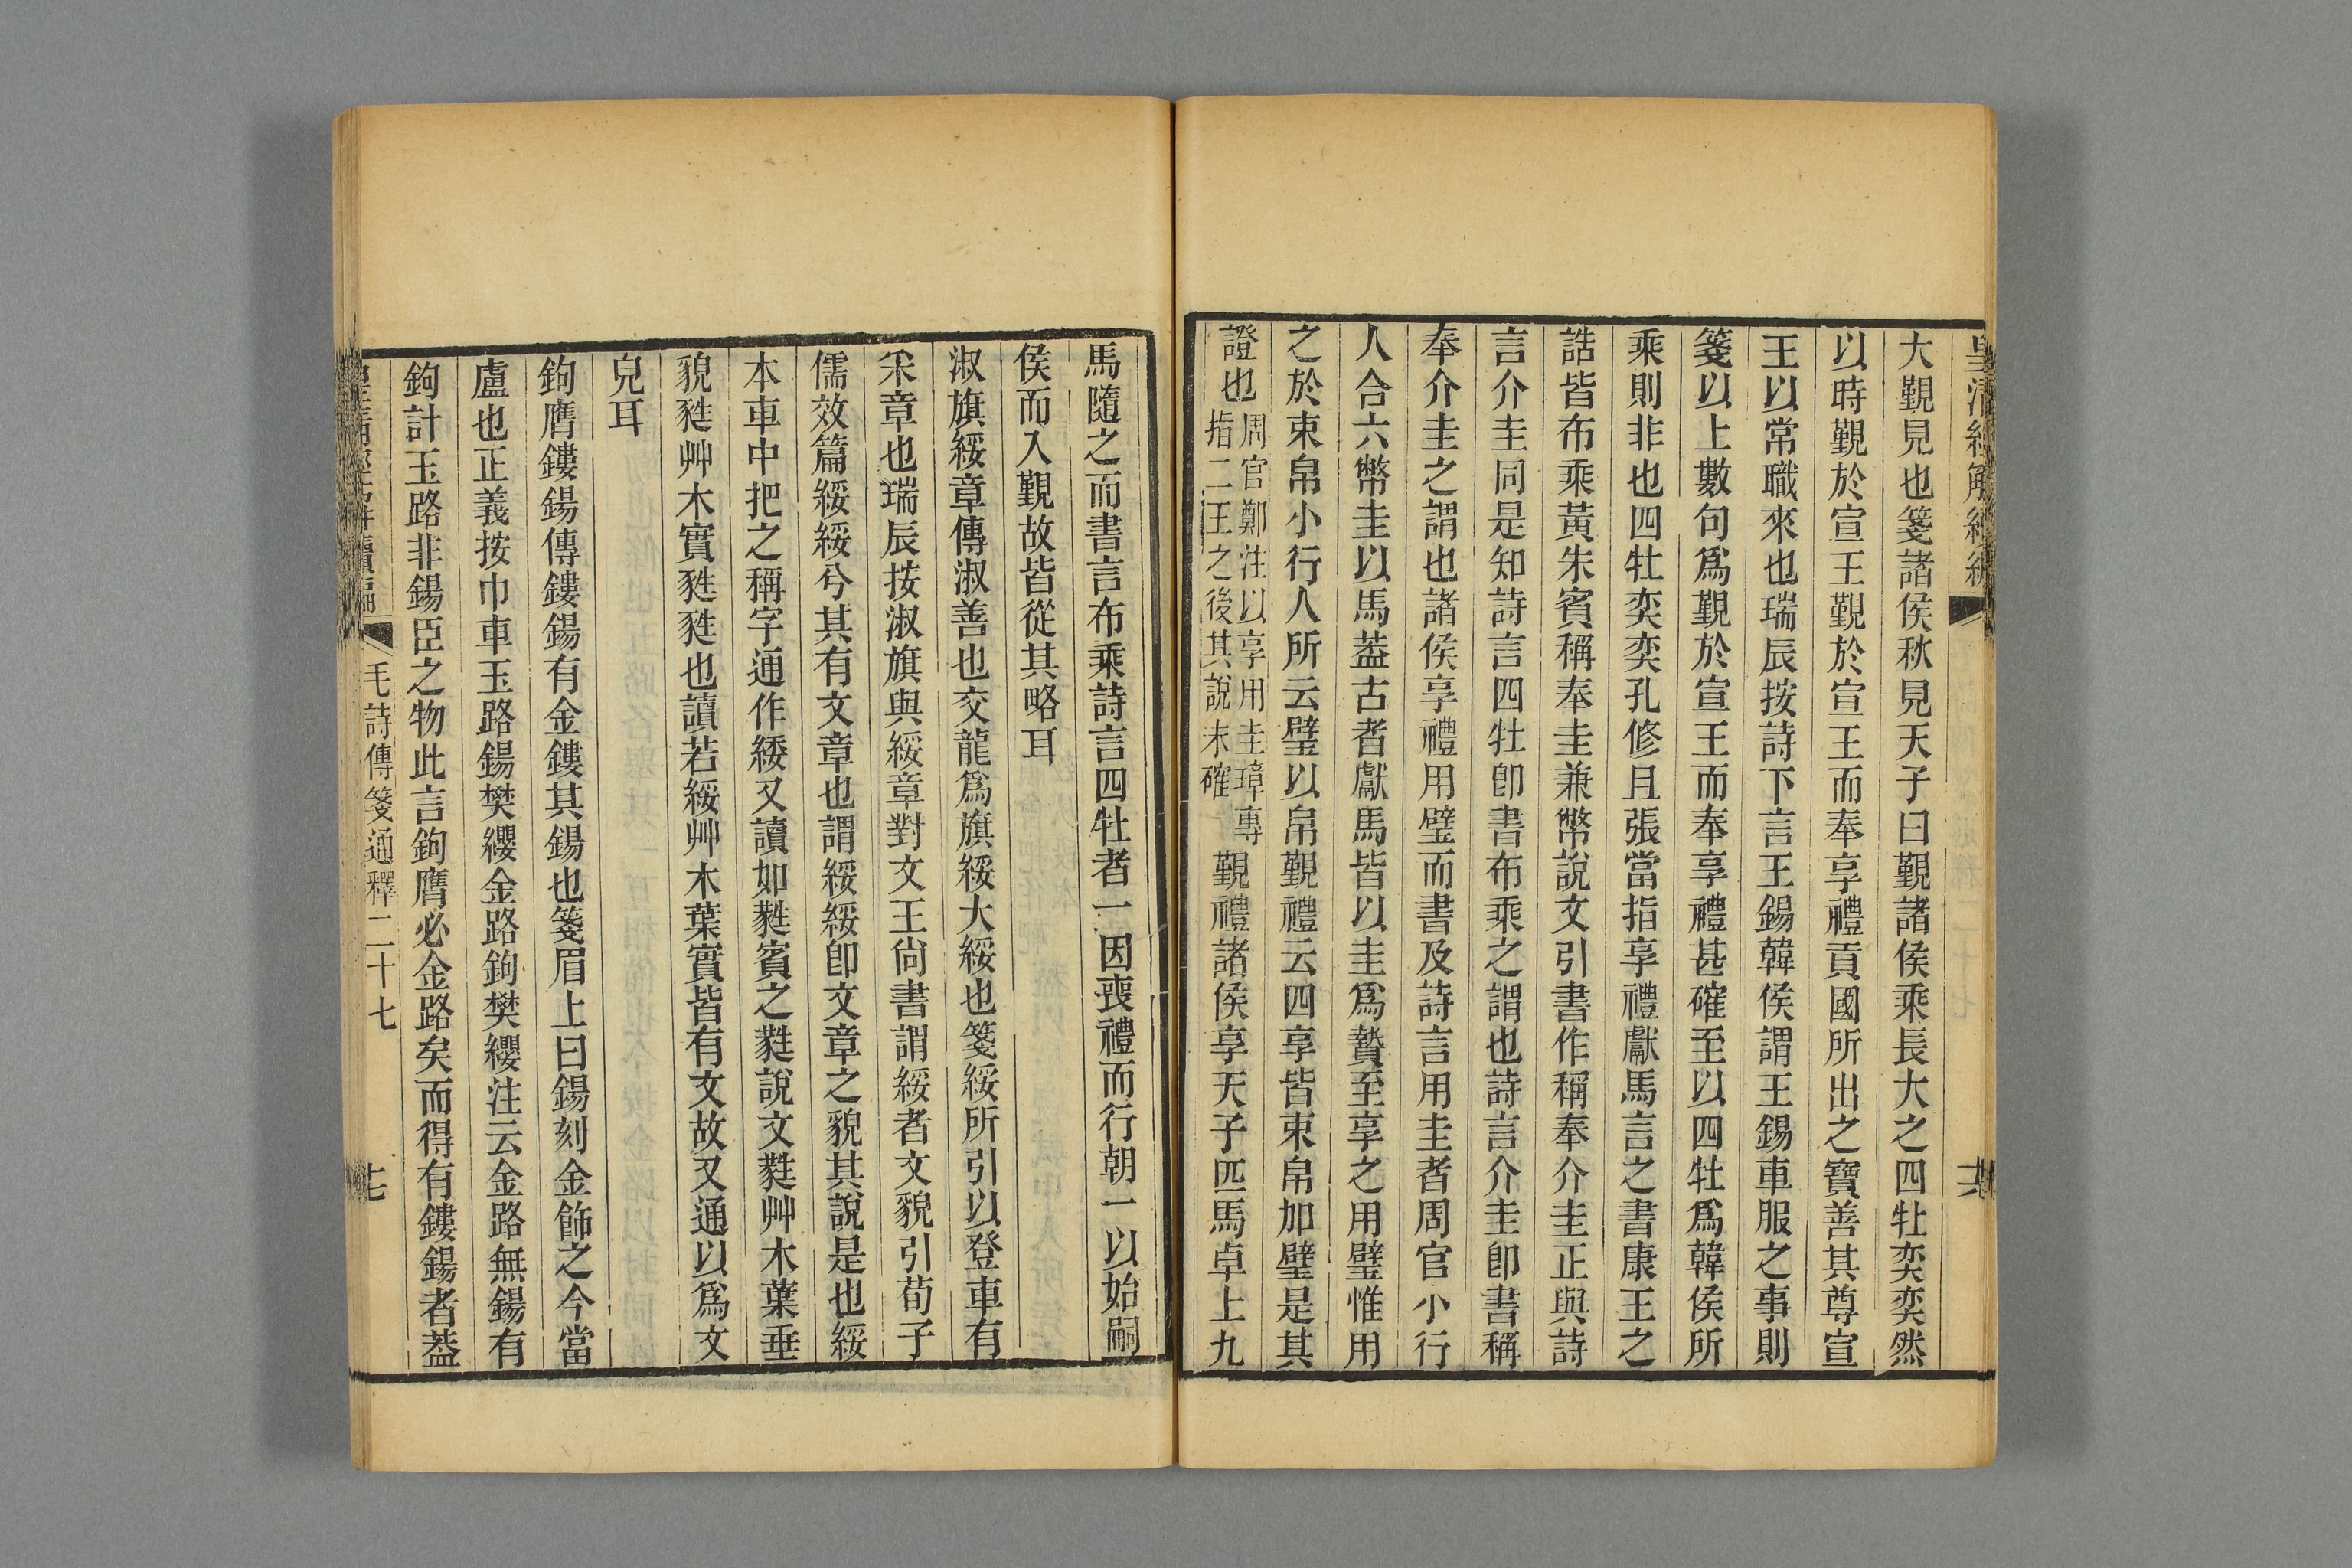 皇清經解續編
大覲見也箋諸侯秋見天子曰覲諸侯乘長大之四牡奕奕然
以時覲於宣王覲於宣王而奉享禮貢國所出之寶善其尊宣
王以常職來也瑞辰按詩下言王錫韓侯謂王錫車服之事則
箋以上數句爲覲於宣王而奉享禮甚確至以四牡爲韓侯所
乘則非也四牡奕奕孔修且張當指享禮獻馬言之書康王之
誥皆布乘黃朱賓稱奉圭兼幣說文引書作稱奉介圭正與詩
言介圭同是知詩言四牡卽書布乘之謂也詩言介圭卽書稱
奉介圭之謂也諸侯享禮用璧而書及詩言用圭者周官小行
人合六幣圭以馬葢古者獻馬皆以圭爲贄至享之用璧惟用
之於束帛小行人所云璧以帛覲禮云四享皆束帛加璧是其
證也周官鄭注以享用圭璋專指二王之後其說未確覲禮諸侯享天子匹馬卓上九
馬隨之而書言布乘詩言四牡者一因喪禮而行朝一以始嗣
侯而入覲故皆從其略耳
淑旂綏章傳淑善也交龍爲旂綏大綏也箋綏所引以登車有
采章也瑞辰按淑旂與綏章對文王尙書謂綏者文貌引荀子
儒效篇綏綏兮其有文章也謂綏綏卽文章之貌其說是也綏
本車中把之稱字通作緌又讀如蕤賓之蕤說文蕤艸木葉垂
貌甤艸木實甤甤也讀若綏艸木葉實皆有文故又通以爲文
皃耳
鉤膺鏤鍚傳鏤鍚有金鏤其鍚也箋眉上曰鍚刻金飾之今當
盧也正義按巾車玉路鍚樊纓金路鉤樊纓注云金路無鍚有
鉤計玉路非鍚臣之物此言鉤膺必金路矣而得有鏤鍚者葢
毛詩傳箋通釋二十七